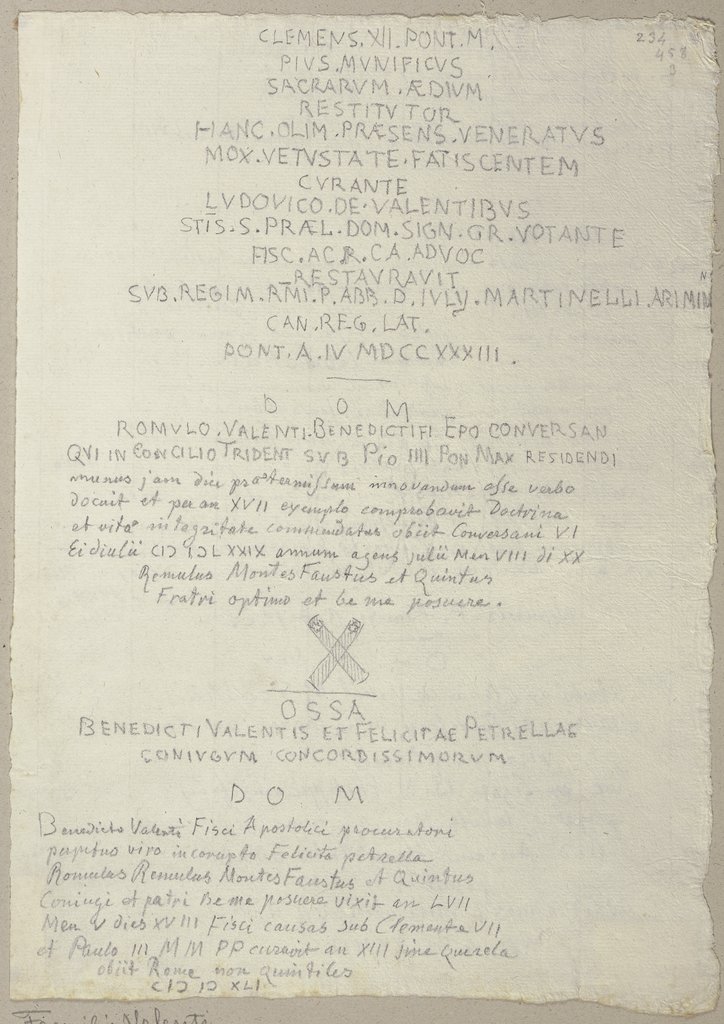 234
458
CLEMENS. XII. PONT. M.
PIVS. MVNIFICVS
SACRARVM. ÆDIVM
RESTITVTOR
HANC. OLIM. PRÆSENS. VENERATVS
MOX. VETVSTATE. FATISCENTEM
CVRANTE
LVDOVICO. DE. VALENTIBVS
STIS. S. PRÆL. DOM. SIGN. GR. VOTANTE
FISC. AC R. CA. ADVOC
RESTAVRAVIT
SVB. REGIM. RMI. P. ABB. D. IVLIJ. MARTINELLI. ARIMIN
CAN. REG. LAT.
PONT. A. IV MDCCXXXIII.
D O M
ROMVLO. VALENTI. BENEDICTI FI EPO CONVERSAN
QVI IN CONCILIO TRIDENT SVB PIO IIII PON MAX RESIDENDI
munus jam diu praetermissum innovandum esse verbo
docuit et per an XVII exemplo comprobavit Doctrina
et vitae intagritate commendatus obiit Conversani VI
Eidiulii CIↃ IↃLXXIX annum agens julii Men VIII di XX
Remulus Montes Faustus et Quintus
Fratri optimo et be me posuere.
OSSA
BENEDICTI VALENTIS ET FELICITAE PETRELLAE
CONIVGVM CONCORDISSIMORVM
D O M
Benedicto Valenti Fisci Apostolici procuratori
perpetuo viro incorupto Felicita petrella
Romulus Remulus Montes Faustus et Quintus
Coniugi et patri Be me posuere vixit an LVII
Men V dies XVIII Fisci causas sub Clemente VII
et Paulo III M M PP curavit an XIII sine Querela
obiit Rome non quintiles
CIↃ IↃ XLI